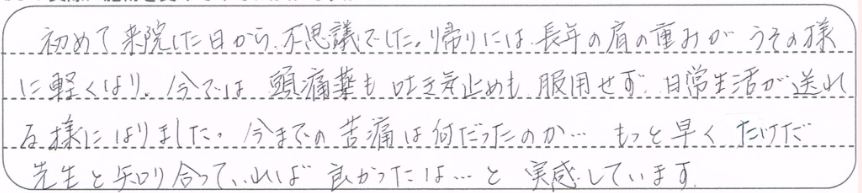 初めて来院した日から、不思議でした。帰りには、長年の肩の重みが うその様
に軽くなり。今では 頭痛薬も 吐き気止めも 服用せず、日常生活が送れ
る様になりました。今までの苦痛は何だったのか… もっと早く たけだ
先生と知り合っていれば 良かったな…と 実感しています。